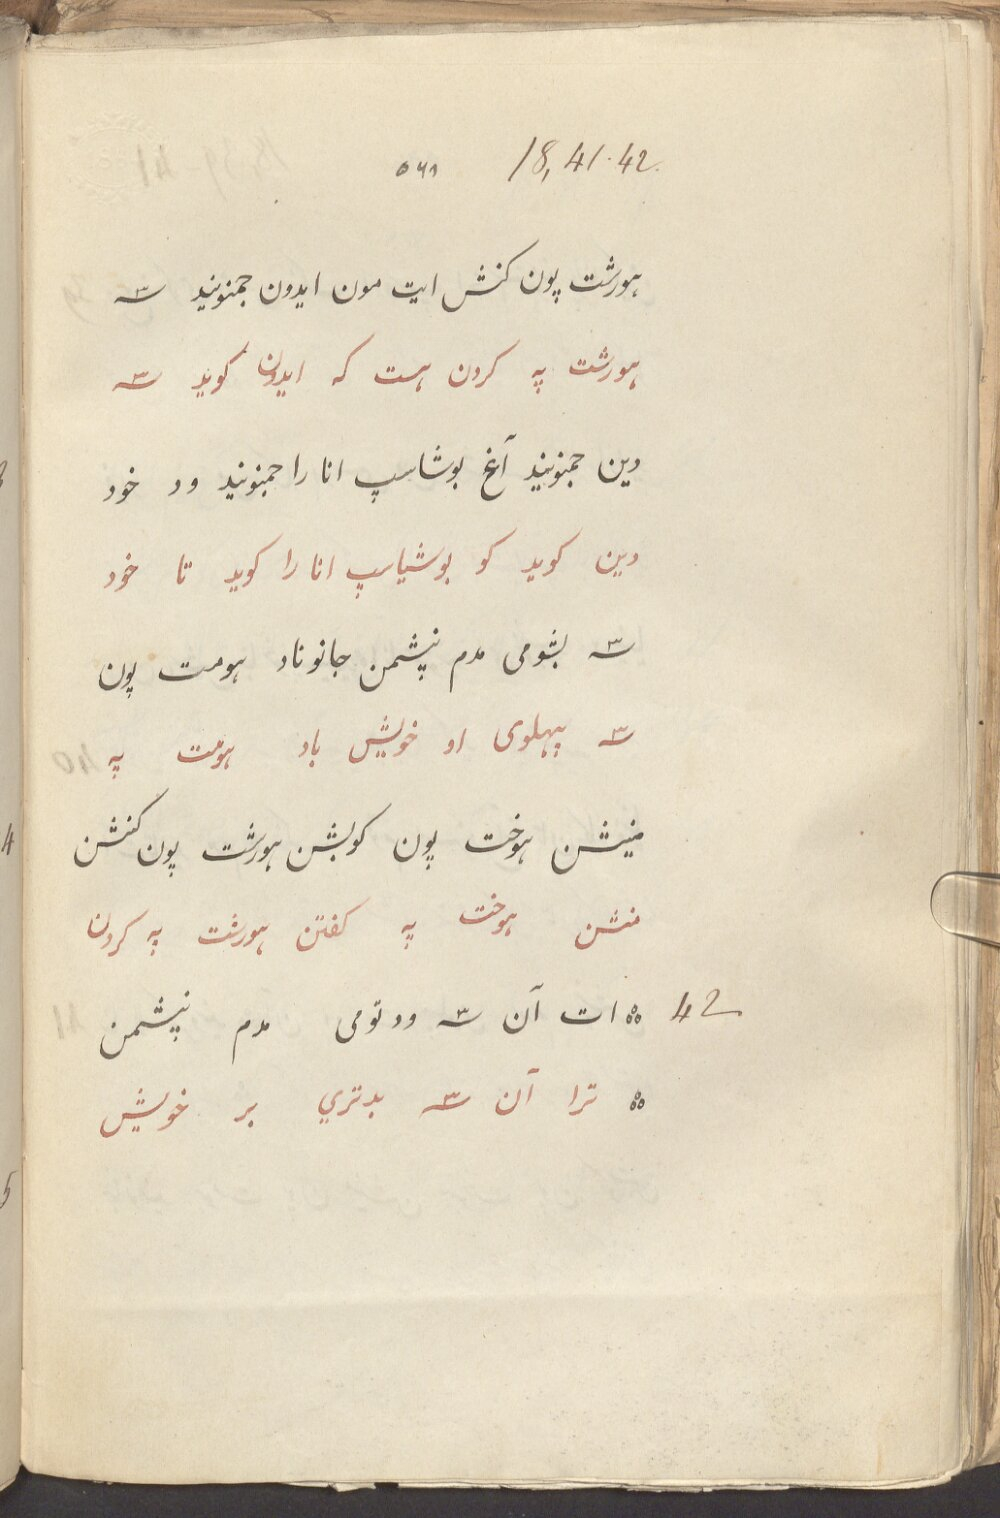 ۵۶۸ 18, 41. 42.
هورشت پون کنش ایت مون ایدون جمنونید سه
هورشت په کردن هست که ایدون کوید سه
دین جمنونید آیغ بوشاسپ انا را جمنونید ود خود
دین کوید کو بوشیاسپ انا را کوید تا خود
سه بشومی مدم نپشمن جانوناد هومت پون
سه پهلوی او خویش باد هومت په
منیشن هوخت پون کوبشن هورشت پون کنشن
منشن هوخت په کفتن هورشت په کردن
42 ات آن سه ودتومی مدم نپشمن
ترا آن سه بدتري بر خویش